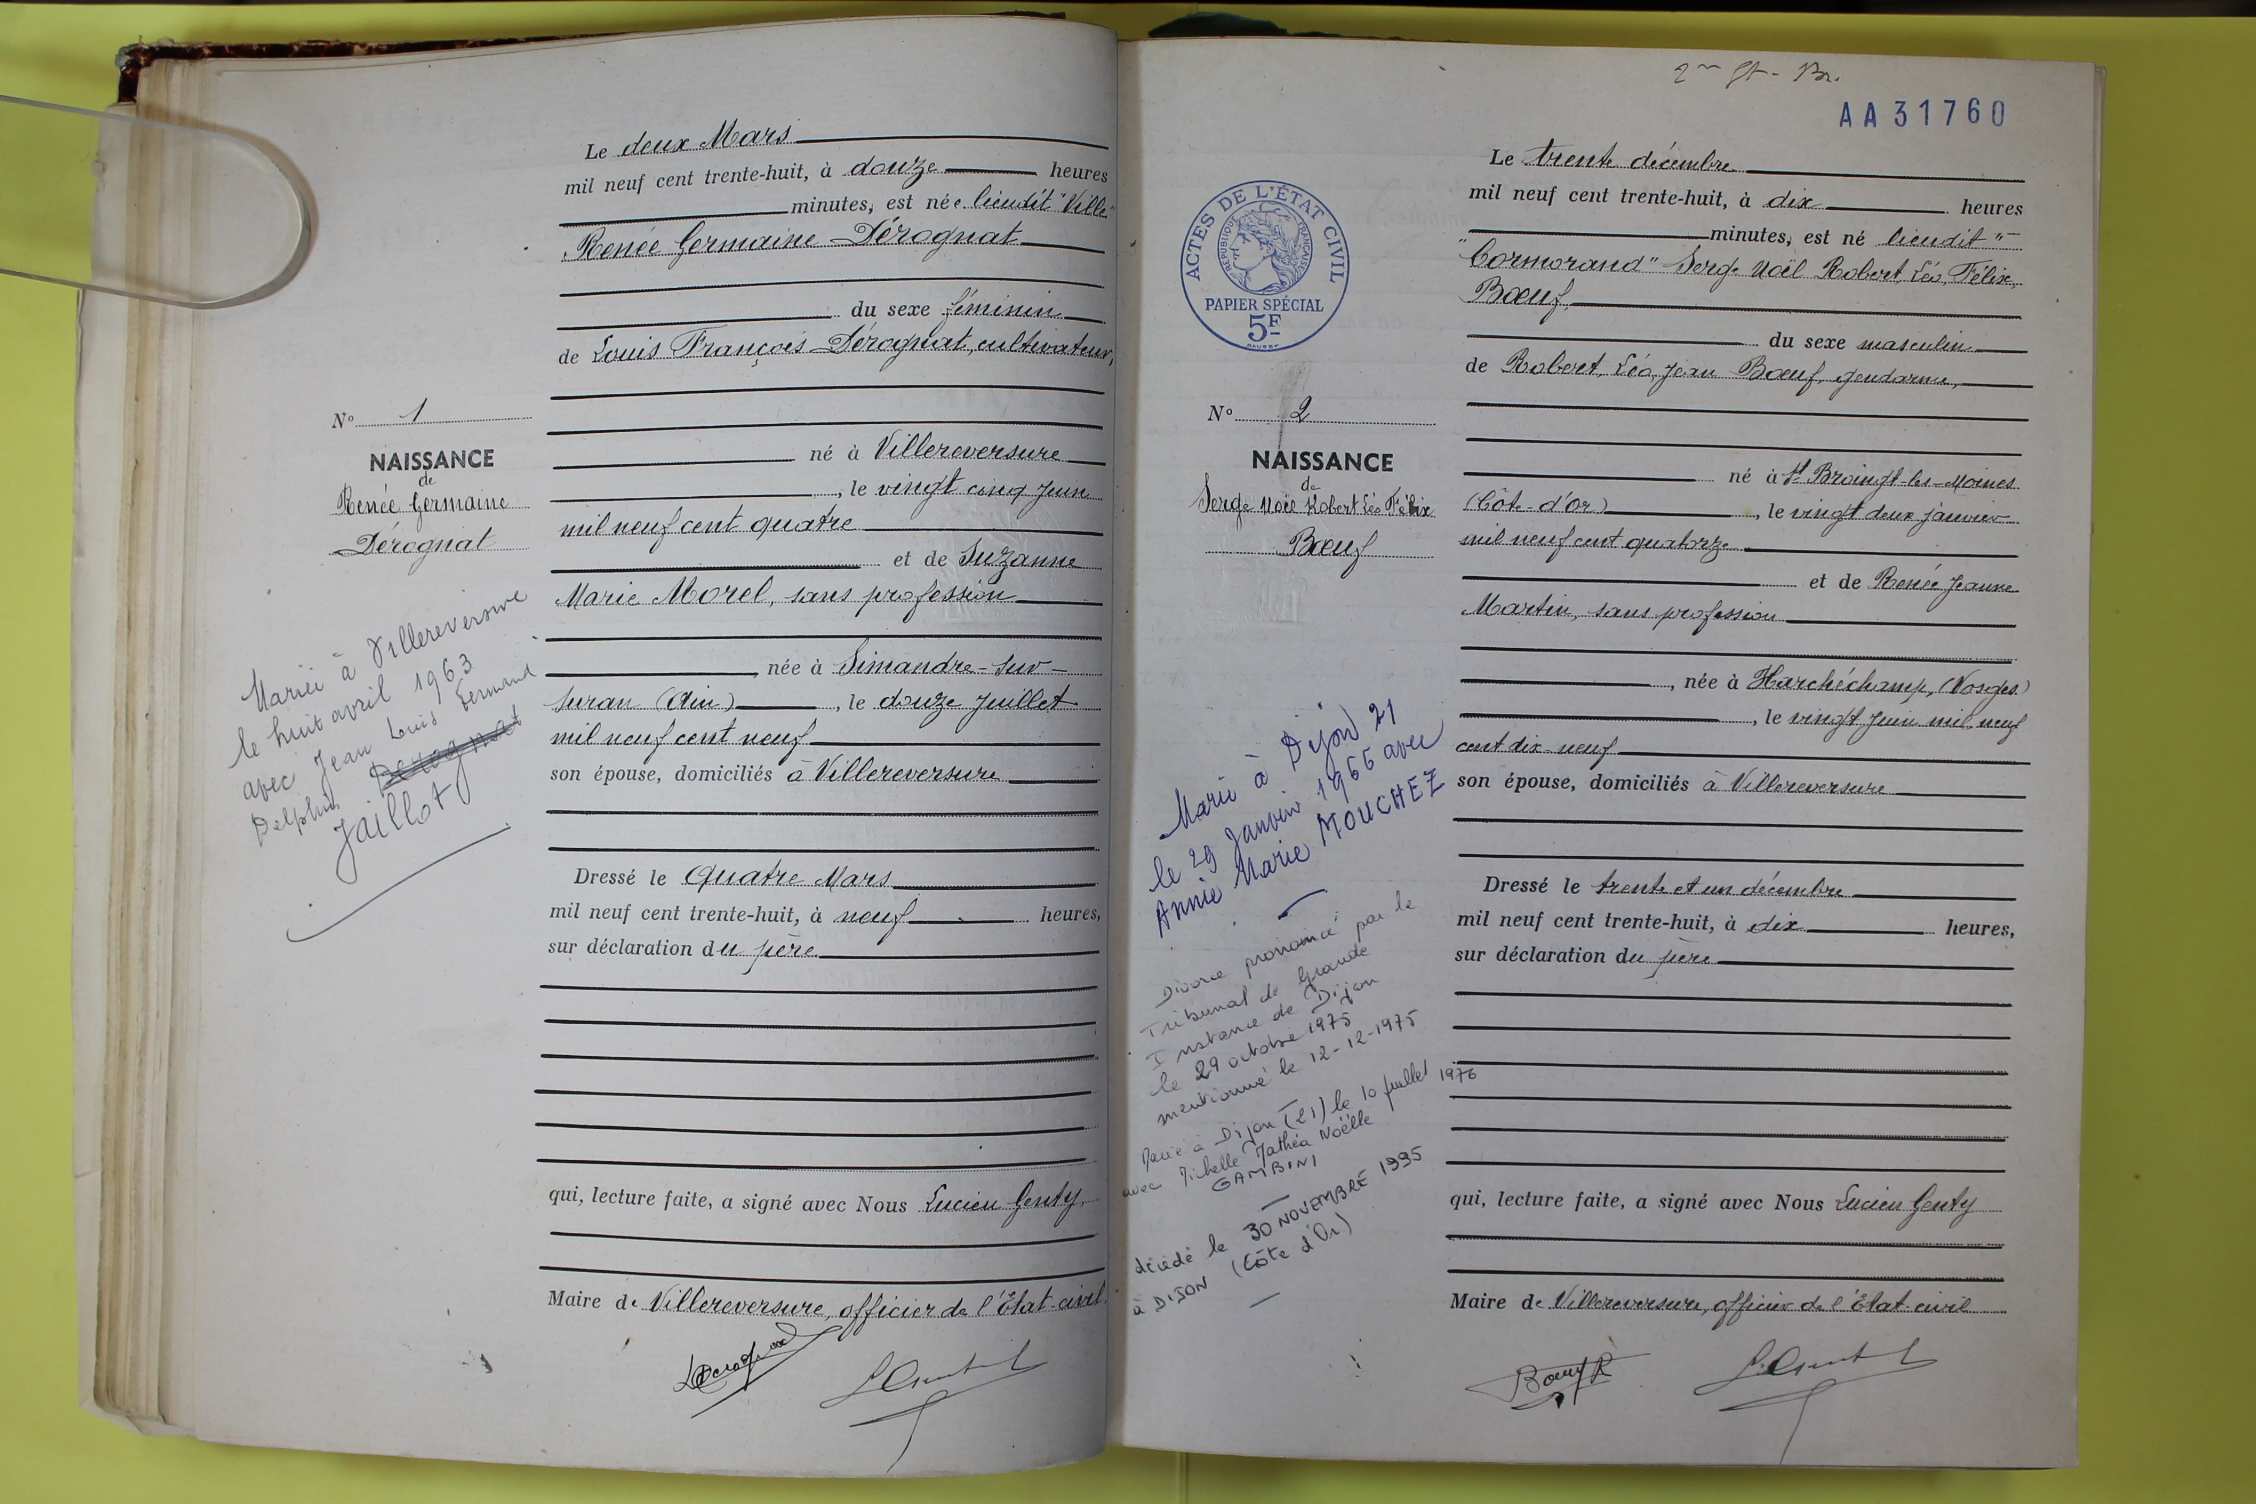 Le deux Mars
mil neuf cent trente-huit, à douze heures
minutes, est née lieudit "Ville"
Renée Germaine Dérognat
du sexe féminin
de Louis François Dérognat, cultivateur,
né à Villereversure
, le vingt cinq Juin
mil neuf cent quatre
et de Suzanne
Marie Morel, sans profession
née à Simandre-sur-
Suran (Ain), le douze Juillet
mil neuf cent neuf
son épouse, domiciliés à Villereversure
Dressé le Quatre Mars
mil neuf cent trente-huit, à neuf heures,
sur déclaration du père
qui, lecture faite, a signé avec Nous Lucien Genty,
Maire de Villereversure, officier de l'État-civil.
N° 1
NAISSANCE
de
Renée Germaine
Dérognat
Mariée à Villereversure
le huit avril 1963
avec Jean Louis Fernand
Delphin
Jaillot
AA31760
ACTES DE L'ÉTAT CIVIL
RÉPUBLIQUE FRANÇAISE
PAPIER SPÉCIAL
5F
Le trente décembre
mil neuf cent trente-huit, à dix heures
minutes, est né lieudit "-
Cormorand" Serge Noël Robert, Léo, Félix,
Bœuf,
du sexe masculin
de Robert, Léo, Jean Bœuf, gendarme,
né à St Broingt-les-Moines
(Côte-d'Or), le vingt deux janvier
mil neuf cent quatorze
et de Renée Jeanne
Martin, sans profession
, née à Harchéchamp, (Vosges)
, le vingt Juin mil neuf
cent dix-neuf
son épouse, domiciliés à Villereversure
Dressé le trente et un décembre
mil neuf cent trente-huit, à dix heures,
sur déclaration du père
qui, lecture faite, a signé avec Nous Lucien Genty
Maire de Villereversure, officier de l'État-civil
Bœuf R
N° 2
NAISSANCE
de
Serge Noël Robert Léo Félix
Bœuf
Marié à Dijon 21
le 29 Janvier 1966 avec
Annie Marie MOUCHEZ
Divorce prononcé par le
Tribunal de Grande
Instance de Dijon
le 29 octobre 1975
mentionné le 12-12-1975
Marié à Dijon (21) le 10 juillet 1976
avec Michelle Mathéa Noëlle
GAMBINI
décédé le 30 NOVEMBRE 1995
à DIJON (Côte d'Or)